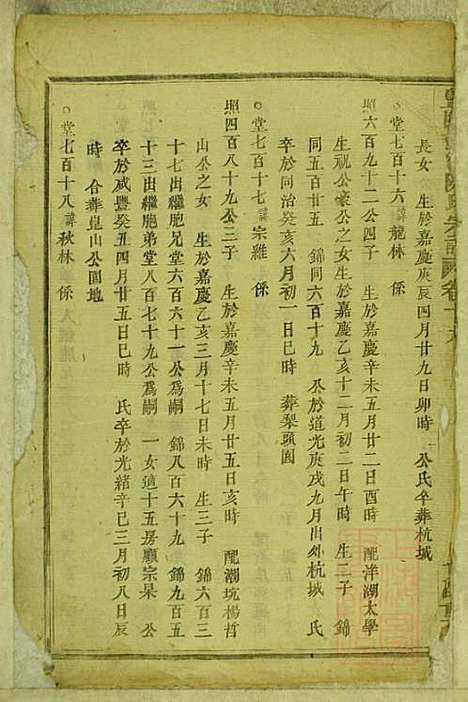 長女　生於嘉慶庚辰四月廿九日卯時　公氏卒葬杭城
○堂七百十六諱龍林　係
照六百九十二公四子　生於嘉慶辛未五月廿二日酉時　配洋湖太學
生祝公豪公之女生於嘉慶乙亥十二月初二日午時　生二子　錦
同五百廿五　錦同六百十九　公於道光庚戌九月出外杭城　氏
卒於同治癸亥六月初一日巳時　葬梨頭園
○堂七百十七諱宗維　係
照四百八十九公三子　生於嘉慶辛未五月廿五日亥時　配潮坑楊哲
山公之女　生於嘉慶乙亥三月十七日未時　生三子　錦六百三
十七出繼胞兄堂六百六十一公爲嗣　錦八百六十九　錦九百五
十三出繼胞弟堂八百七十九公爲嗣　一女適十五房廳宗杲　公
卒於咸豐癸丑四月廿五日巳時　氏卒於光緒辛巳三月初八日辰
時　合葬見山公園地
○堂七百十八諱秋林　係